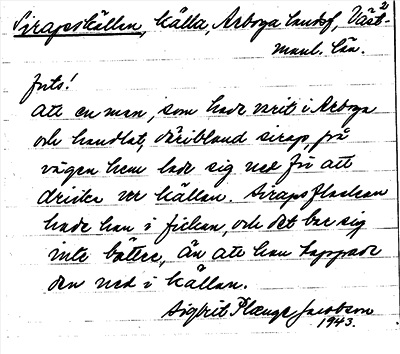 Sirapskällan, källa, Arboga landsf, Väst-2
manl. län.
Jnts!
Att en man, som hade varit i Arboga
och handlat, däribland sirap, på
vägen hem lade sig ned för att
dricka ur källan. Sirapsflaskan
hade han i fickan, och det bar sig
inte bättre, än att han tappade
den ned i källan.
Sigbrit Plænge Jacobson
1943.